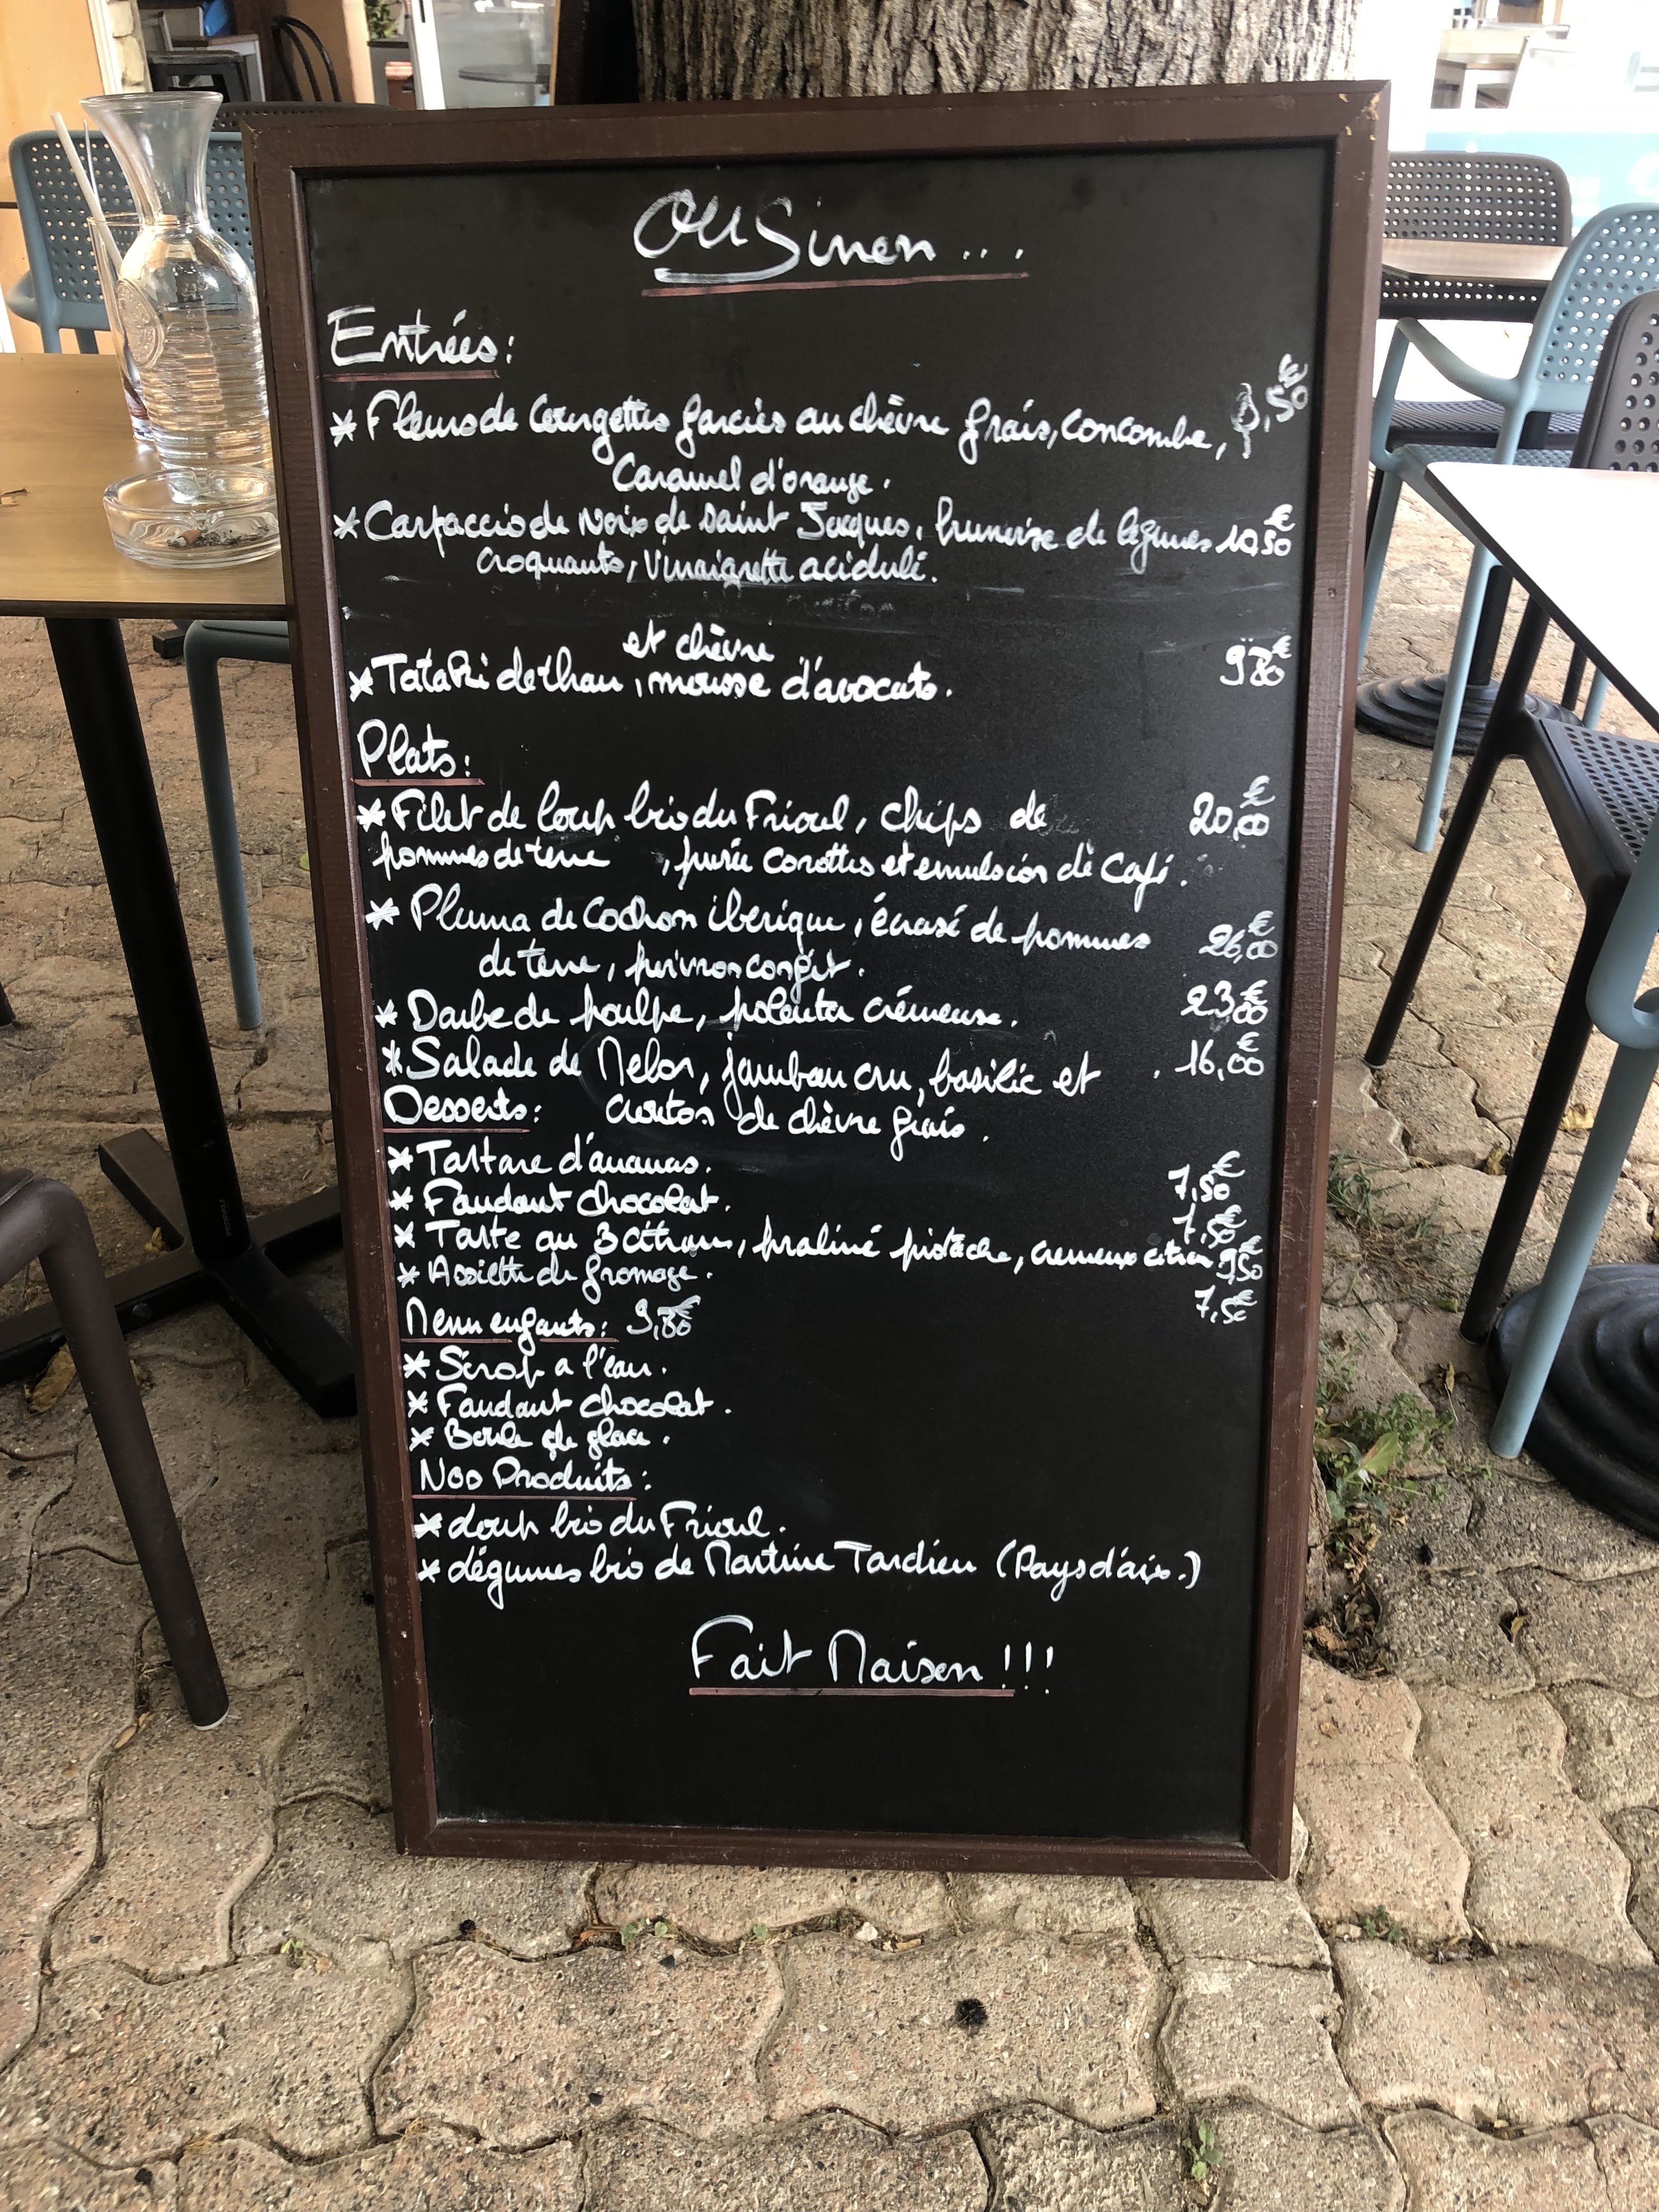 OU Sinon...
Entrées:
* Fleurs de Courgettes farcies au chèvre frais, concombre, 9,50€
Caramel d'orange.
* Carpaccio de Noix de Saint Jacques, brunoise de légumes 10,50€
croquants, Vinaigrette acidulé.
et chèvre
* Tataki de thon, mousse d'avocats. 9,80€
Plats:
* Filet de loup bio du Frioul, chips de 20,00€
pommes de terre, purée carottes et emulsion de Café.
* Pluma de Cochon iberique, écrasé de pommes 26,00€
de terre, poivron confit.
* Daube de poulpe, polenta crémeuse. 23,00€
* Salade de Melon, jambon cru, basilic et 16,00€
Desserts: crouton de chèvre frais.
* Tartare d'ananas. 7,50€
* Fondant chocolat. 7,50€
* Tarte au 3 citrons, praliné pistache, cremeux citron 9,50€
* Assiette de fromage. 7,50€
Menu enfants: 9,80€
* Sirop a l'eau.
* Fondant chocolat.
* Boule de glace.
Nos Produits:
* Loup bio du Frioul.
* Légumes bio de Martine Tardieu (Pays d'aix.)
Fait Maison!!!